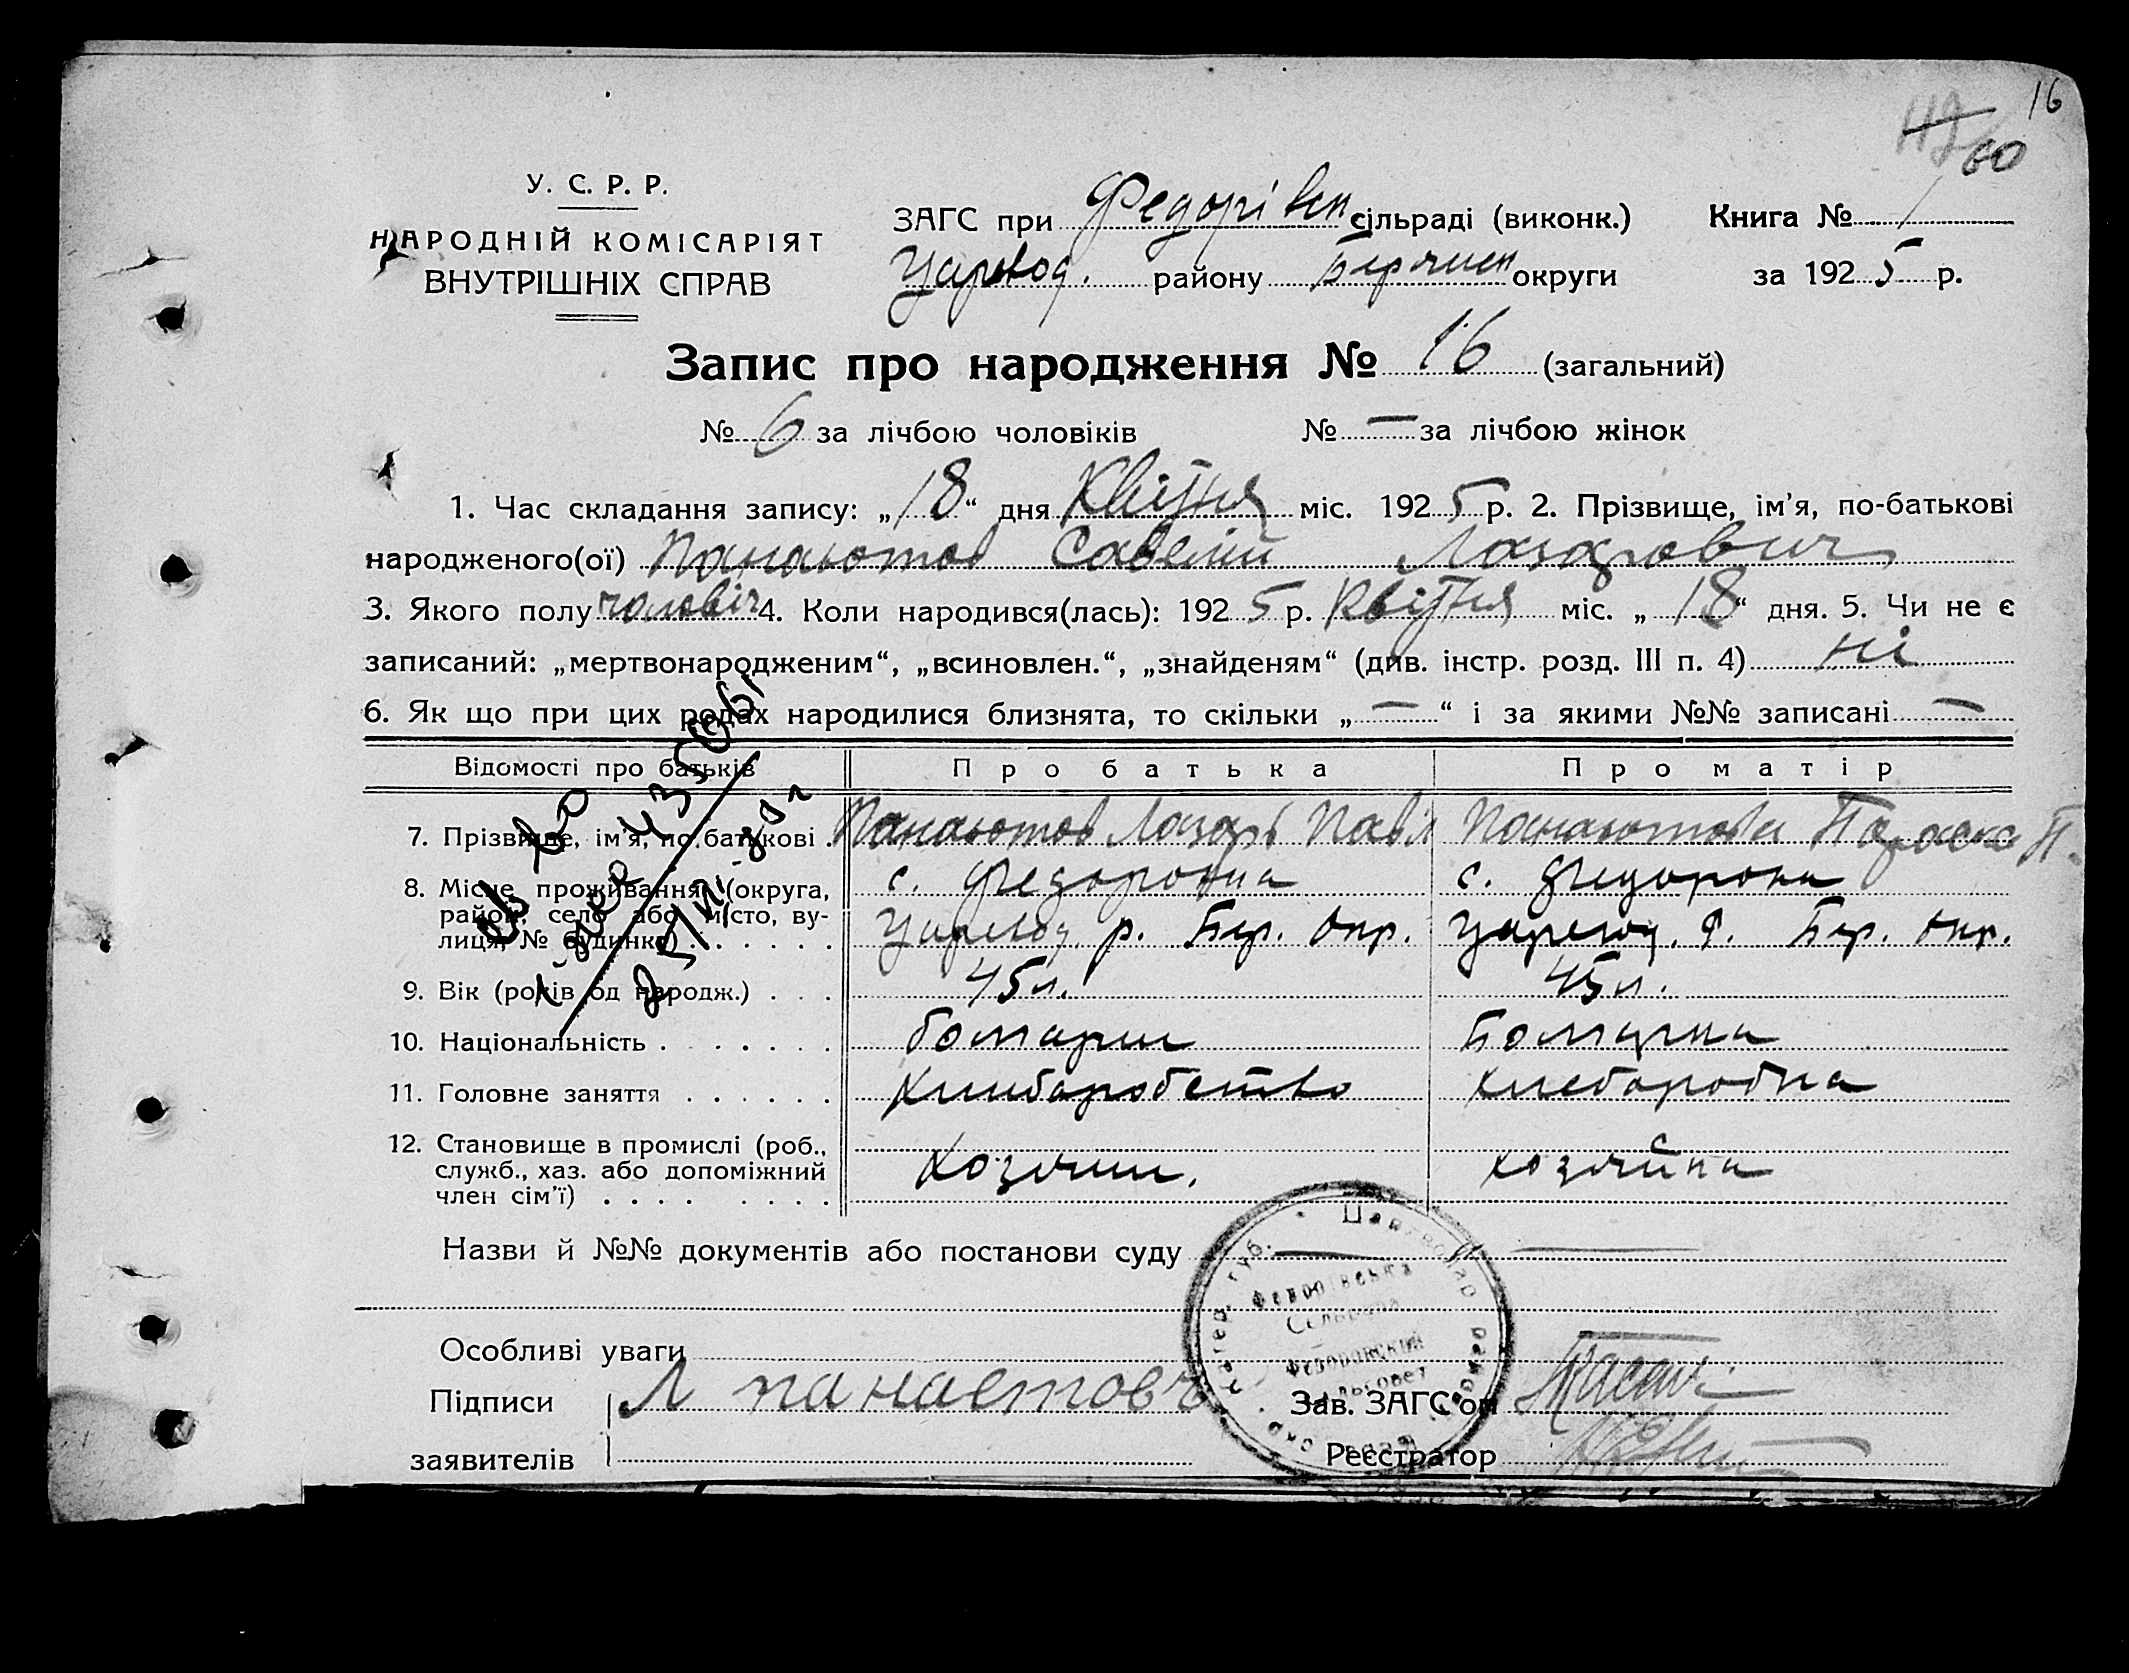 16
60
У. С. Р. Р.
НАРОДНІЙ КОМІСАРІЯТ
ВНУТРІШНІХ СПРАВ
ЗАГС при Федорівск сільраді (виконк.) Книга № 1
Царевод. району Бердянск округи за 1925 р.
Запис про народження № 16 (загальний)
№ 6 за лічбою чоловіків № — за лічбою жінок
1. Час складання запису: „18“ дня Квітня міс. 1925 р. 2. Прізвище, ім'я, по-батькові
народженого(ої) Панаютов Савелій Лазарович
3. Якого полу чоловіч 4. Коли народився(лась): 1925 р. Квітня міс. „18“ дня. 5. Чи не є
записаний: „мертвонародженим“, „всиновлен.“, „знайденям“ (див. інстр. розд. III п. 4) ні
6. Як що при цих родах народилися близнята, то скільки „—“ і за якими №№ записані —
Відомості про батьків Про батька Про матір
7. Прізвище, ім'я, по батькові . Панаютов Лазарь Павл Панаютова Параска П.
8. Місце проживання (округа, район, село або місто, вулиця, № будинка) . . . . . .
с. Федоровка Царевод р. Бер. Окр.
с. Федоровка Царевод. р. Бер. Окр.
9. Вік (років од народж.) . . . 45 л. 45 л.
10. Національність . . . . . . . болгарин Болгарка
11. Головне заняття . . . . . . Хлиборобство хлеборобка
12. Становище в промислі (роб., служб., хаз. або допоміжний член сім'ї) . . . . . . . .
Хозяин. хозяйка
Назви й №№ документів або постанови суду
Особливі уваги
Підписи
заявителів
Л панаетовъ
Зав. ЗАГС'ом
Реєстратор
Федорівська
Сельрада
Федоровский
сельсовет